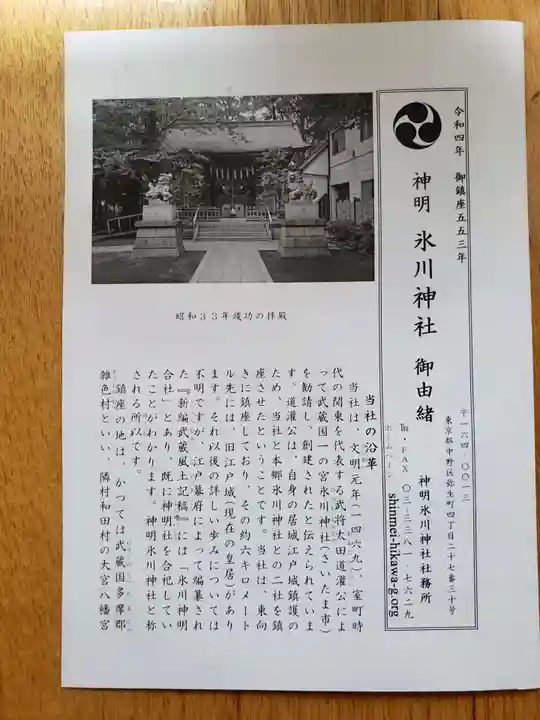 令和四年　御鎮座五五三年
神明 氷川神社 御由緒
〒一六四‐〇〇一三
東京都中野区弥生町四丁目二十七番三十号
神明氷川神社社務所
℡・FAX 〇三‐三三八一‐七六二九
ホームページ
shinmei-hikawa-g.org
昭和３３年竣功の拝殿
当社の沿革
当社は、文明元年(一四六九)、室町時
代の関東を代表する武将太田道灌公によ
って武蔵国一の宮氷川神社(さいたま市)
を勧請し、創建されたと伝えられていま
す。道灌公は、自身の居城江戸城鎮護の
ため、当社と本郷氷川神社との二社を鎮
座させたということです。当社は、東向
きに鎮座しており、その約六キロメート
ル先には、旧江戸城(現在の皇居)があり
ます。それ以後の詳しい歩みについては
不明ですが、江戸幕府によって編纂され
た『新編武蔵風土記稿』には「氷川神明
合社」とあり、既に神明社を合祀してい
たことがわかります。神明氷川神社と称
される所以です。
鎮座の地は、かつては武蔵国多摩郡
雑色村といい、隣村和田村の大宮八幡宮